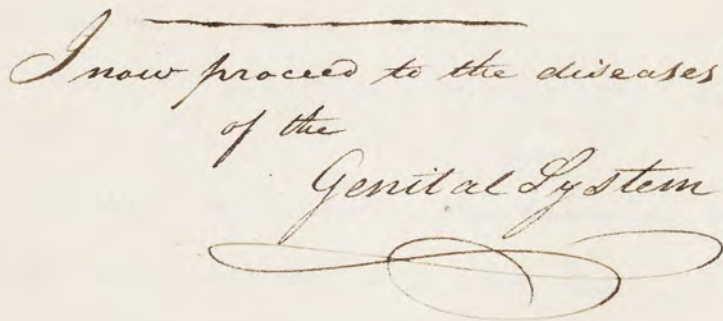 I now proceed to the diseases
of the
Genital System